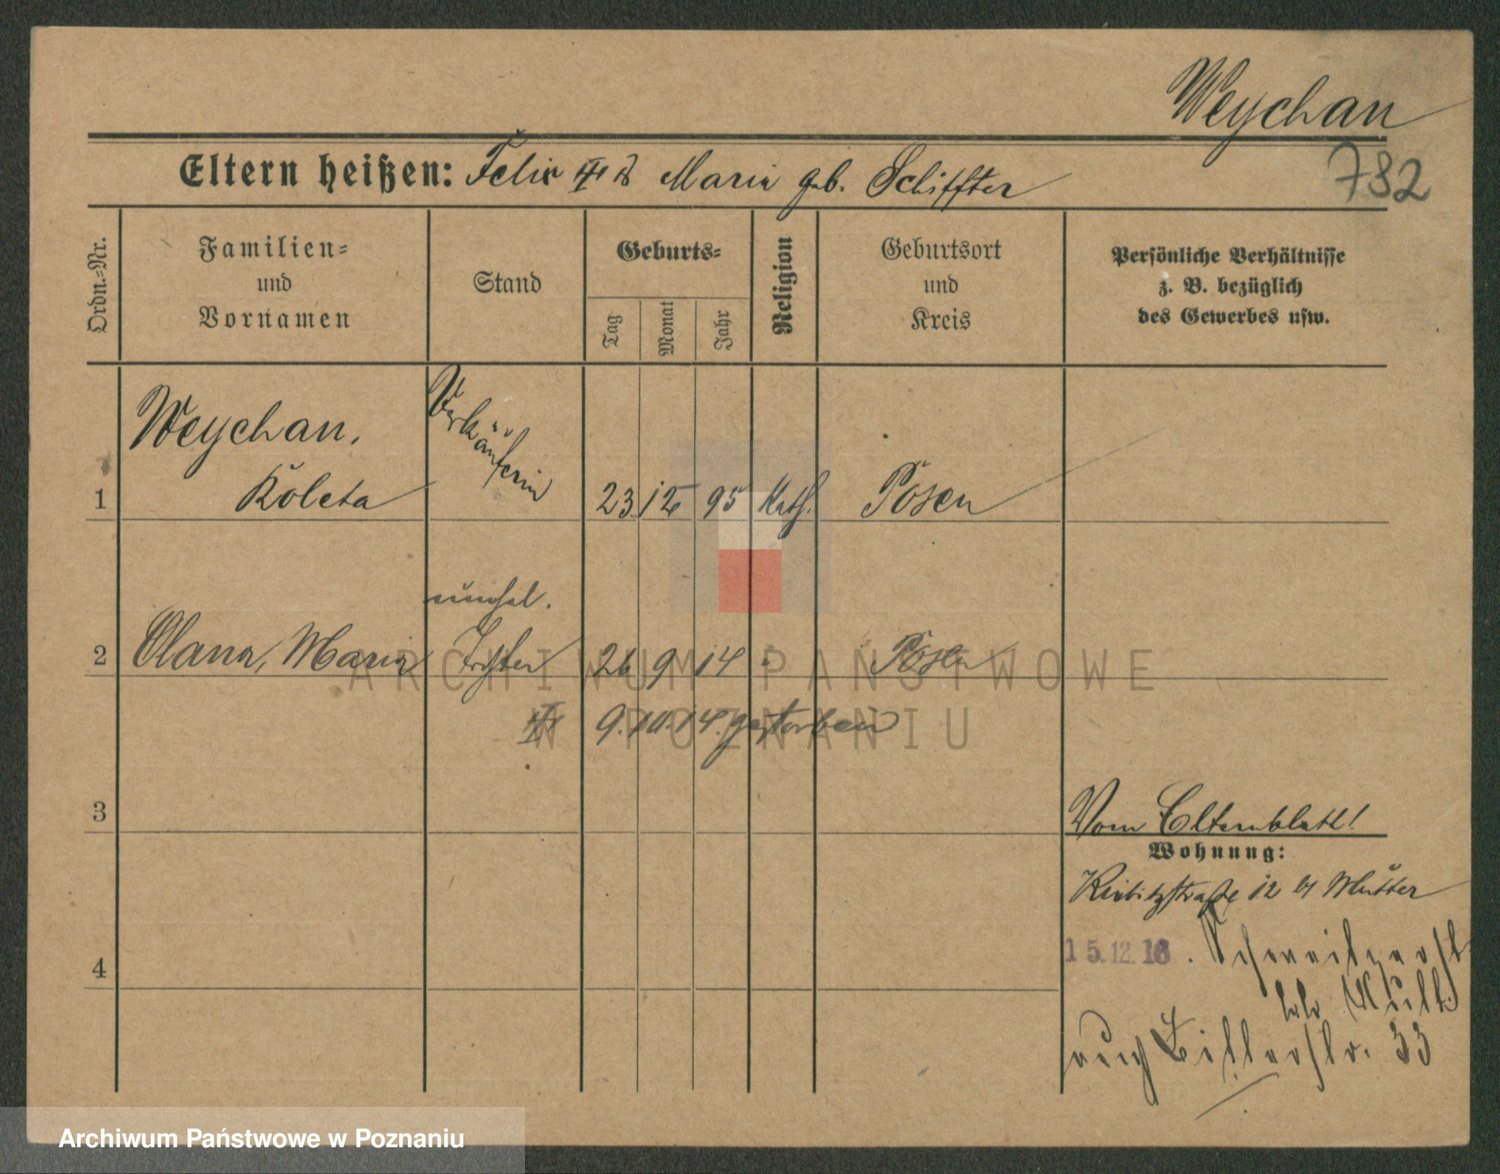 Weychan
782
Eltern heißen: Felix u. Maria geb. Schiffter
Ordn.-Nr.
Familien-
und
Vornamen
Stand
Geburts-
Tag
Monat
Jahr
Religion
Geburtsort
und
Kreis
Persönliche Verhältnisse
z. B. bezüglich
des Gewerbes usw.
Weychan,
Verkäuferin
1 Koleta 23 12 95 Kath. Posen
unehel.
2 Maria Tochter 26 9 14 " Posen
9.10.14. gestorben
3
Vom Elternblatt!
Wohnung:
Kiebitzstraße 12 b/ Mutter
15.12.16.
4
33
ARCHIWUM PAŃSTWOWE
W POZNANIU
Archiwum Państwowe w Poznaniu